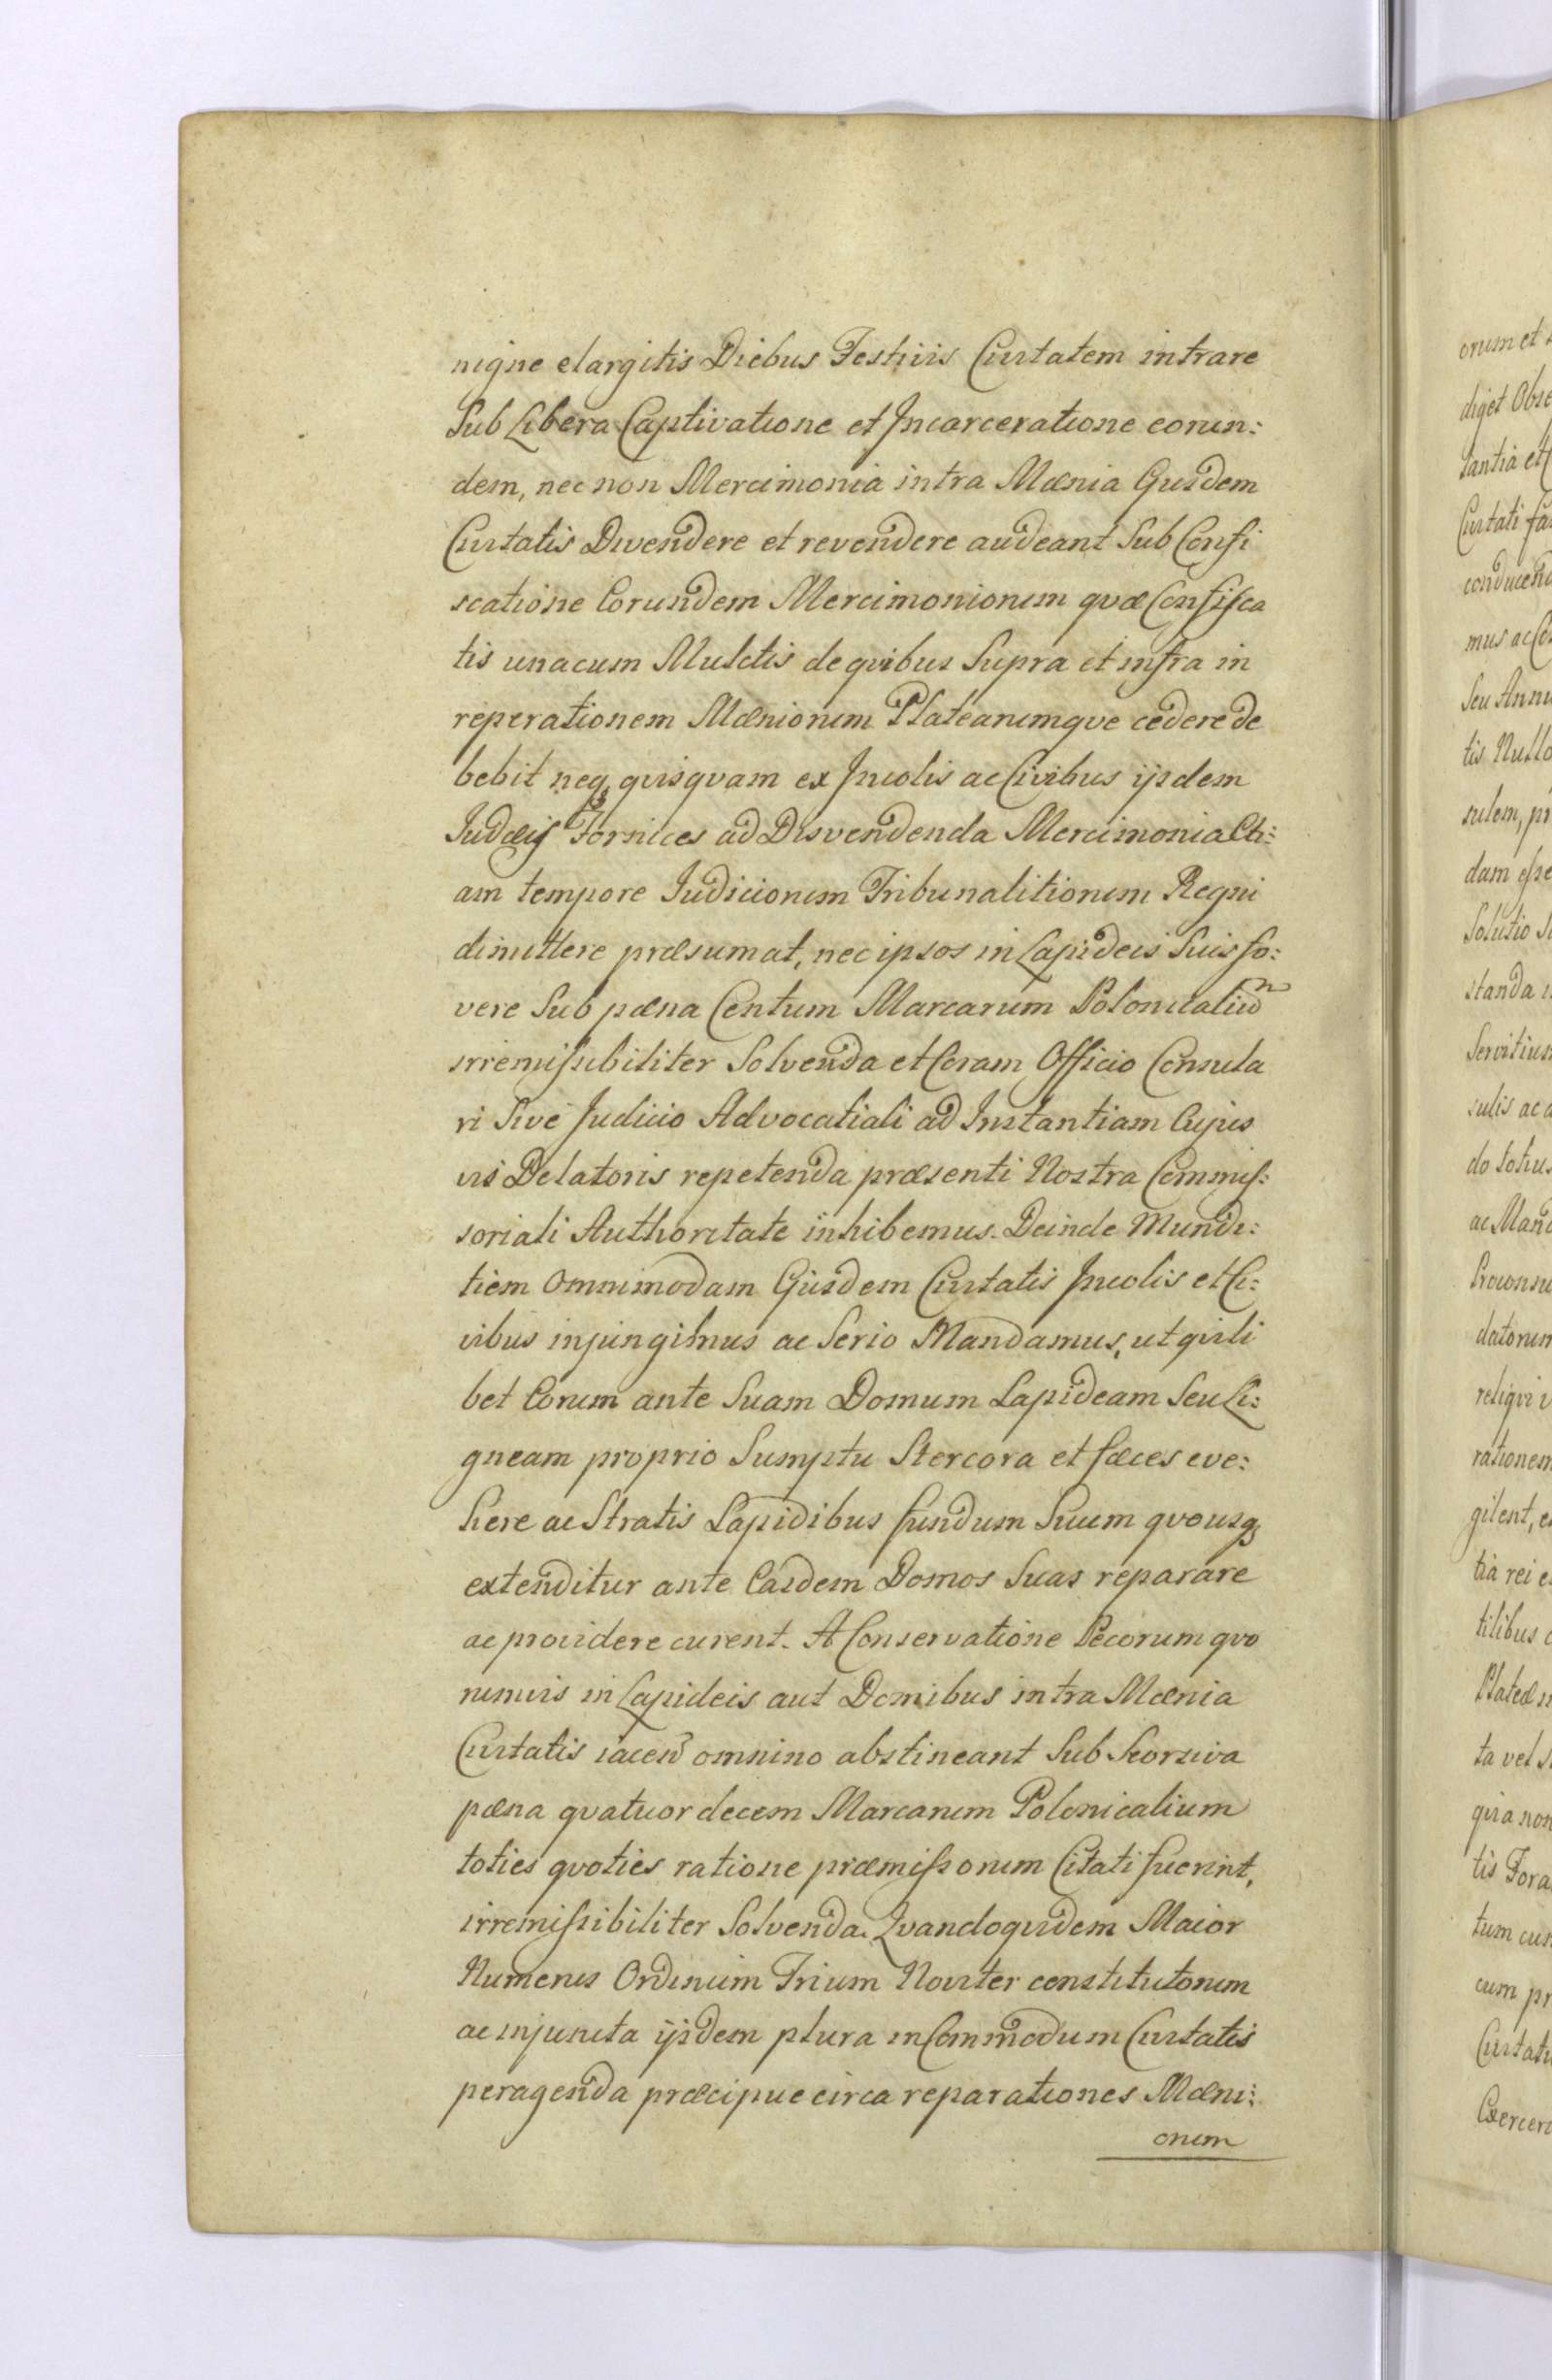 nigne elargitis Diebus Festivis Civitatem intrare
Sub Libera Captivatione et Incarceratione eorun:
dem, nec non Mercimonia intra Mænia Ejusdem
Civitatis Divendere et revendere audeant Sub Confi
scatione Eorundem Mercimoniorum quæ Confisca
tis unacum Mulctis de quibus Supra et infra in
reperationem Mæniorum Platearumque cedere de
bebit neq quisquam ex Incolis ac Civibus ijsdem
Judæis Fornices ad Disvendenda Mercimonia Eti:
am tempore Judiciorum Tribunalitiorum Regni
dimittere præsumat, nec ipsos in Lapideis Suis fo:
vere Sub pæna Centum Marcarum Polonicaliũ
irremissibiliter Solvenda et Coram Officio Consula
ri Sive Judicio Advocatiali ad Instantiam Cujus
vis Delatoris repetenda præsenti Nostra Commis:
soriali Authoritate inhibemus. Deinde Mundi:
tiem Omnimodam Ejusdem Civitatis Incolis et Ci:
vibus injungimus ac Serio Mandamus, ut quili
bet Eorum ante Suam Domum Lapideam Seu Li:
gneam proprio Sumptu Stercora et fæces eve:
here ac Stratis Lapidibus fundum Suum quousq
extenditur ante Easdem Domos Suas reparare
ac providere curent. A Conservatione Pecorum quo
rumvis in Lapideis aut Domibus intra Mænia
Civitatis iaceñ omnino abstineant Sub Seorsiva
pæna quatuordecem Marcarum Polonicalium
toties quoties ratione præmissorum Citati fuerint,
irremissibiliter Solvenda. Quandoquidem Maior
Numerus Ordinum Trium Noviter constitutorum
ac injuncta ijsdem plura in Commodum Civitatis
peragenda præcipue circa reparationes Mæni:
orum
orum et
diget Obse
tantia et
Civitati
conducend
mus ac
Seu Annu
tis Nullo
sulem, pr
dam esse
Solutio
standa
Servitium
sulis ac
do totius
ac Mand
Proconsu
datorum
reliqui
rationem
gilent,
tia rei
tilibus
Plateæ
ta vel
quia non
tis Fora
tum cum
cum pr
Civitati
Exercere